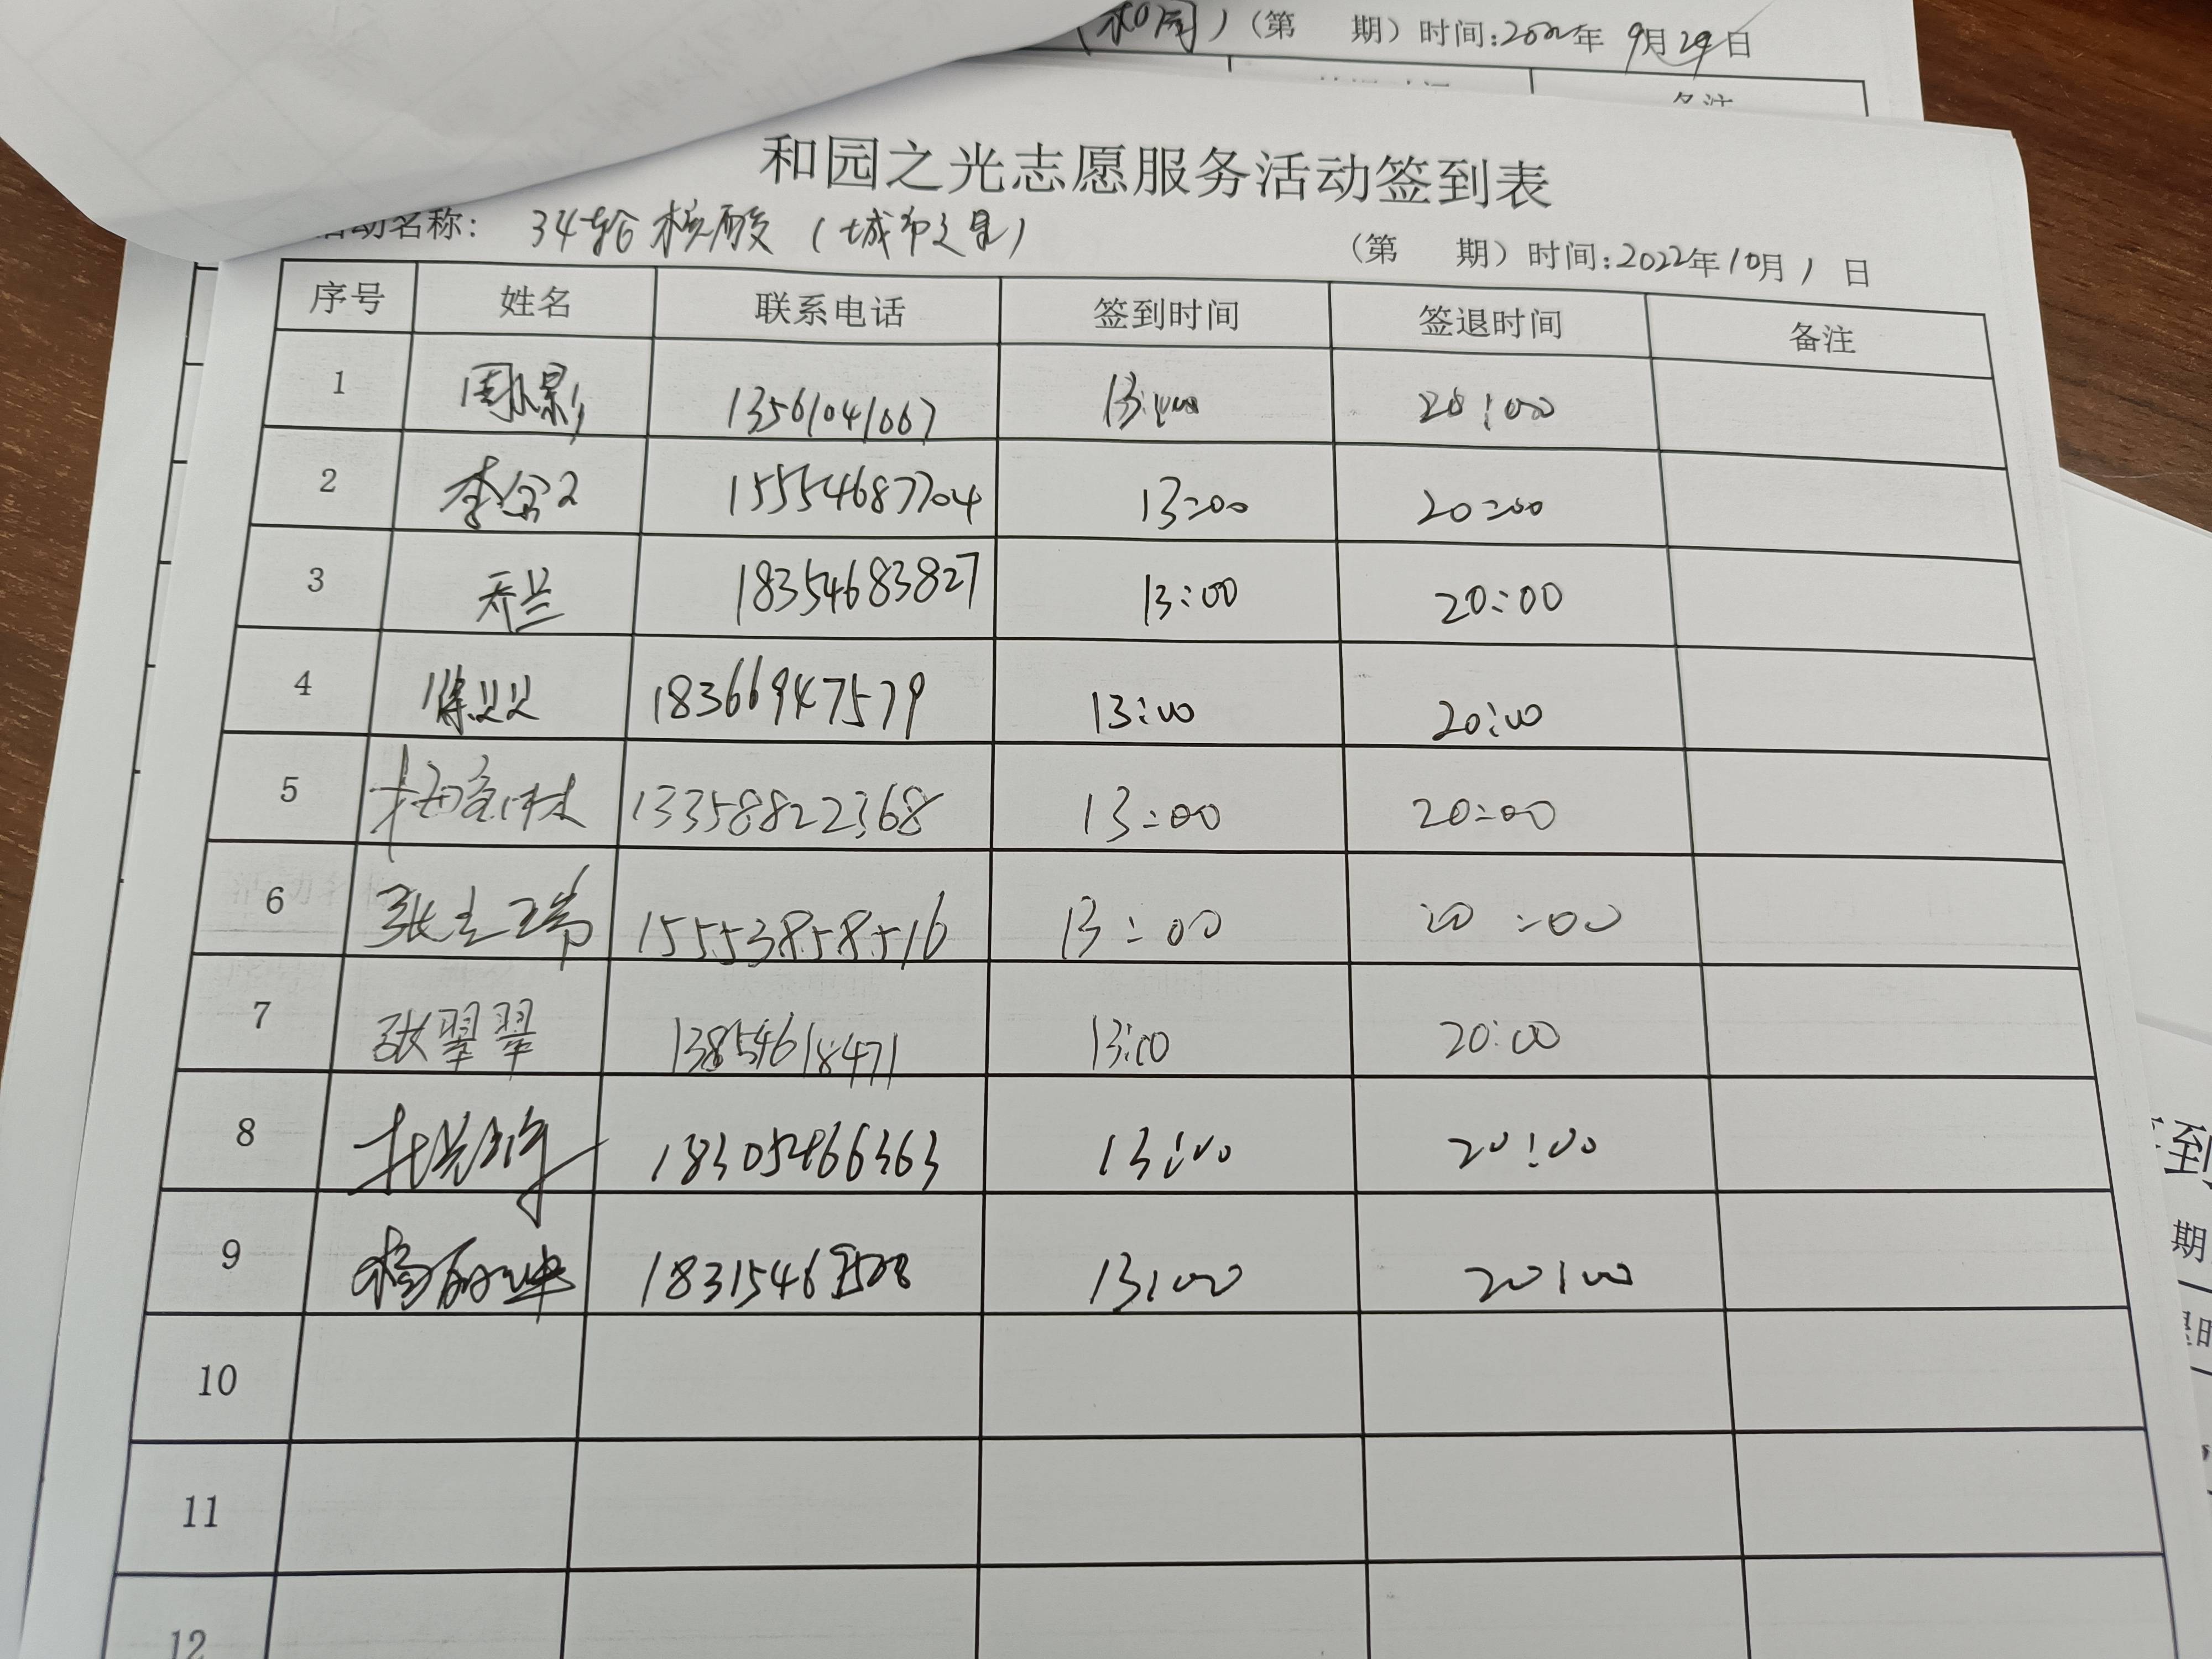 （和园）（第 期）时间:2022年9月29日
备注
和园之光志愿服务活动签到表
活动名称: 34轮核酸（城市之星）
（第 期）时间:2022年10月1日
序号 姓名 联系电话 签到时间 签退时间 备注
1 周影 13561041067 13:00 20:00
2 李 15554687704 13:00 20:00
3 乔兰 18354683827 13:00 20:00
4 徐双双 18366947579 13:00 20:00
5 13358822368 13:00 20:00
6 张立瑞 15553858516 13:00 20:00
7 张翠翠 13854618471 13:00 20:00
8 18305466363 13:00 20:00
9 杨丽坤 1831546 13:00 20:00
10
11
12
签到
期